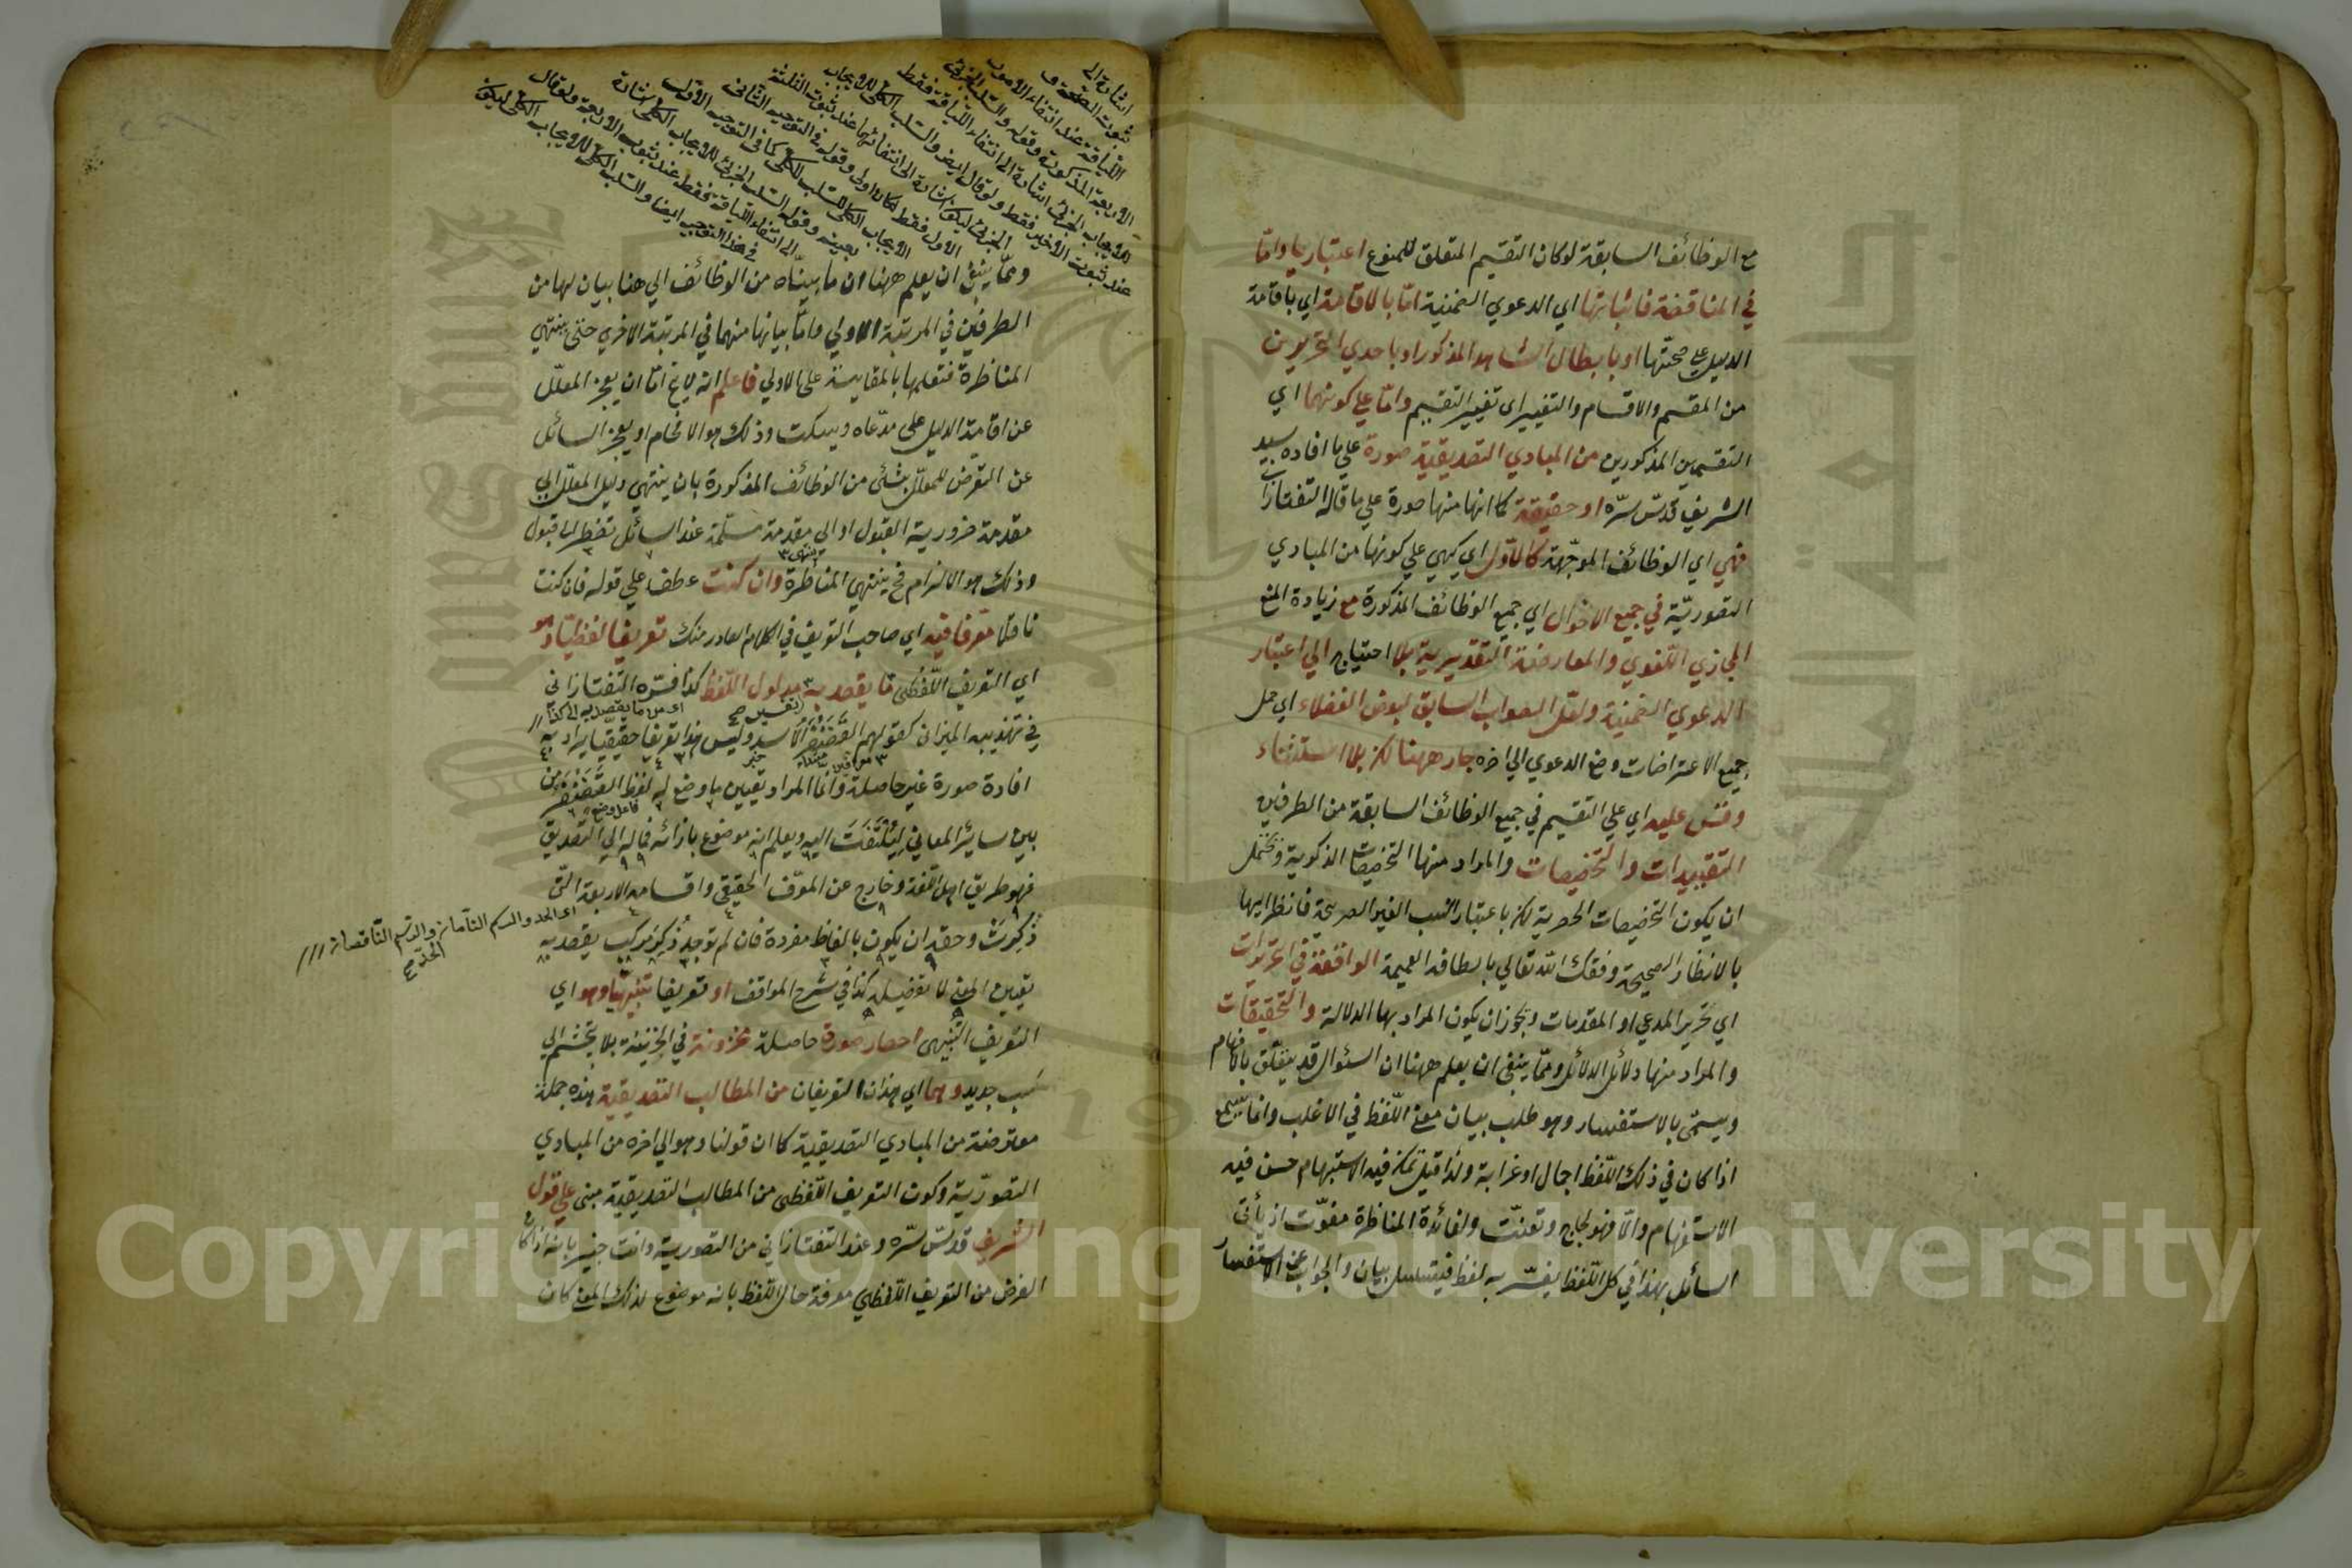 مع الوظائف السابقة لو كان التقسيم المتعلق للمنوع اعتباريا واما
في المناقضة فاثباتها اي الدعوي الضمنية اما بالاقامة اي باقامة
الدليل علي صحتها او بابطال الشاهد المذكور او باحدي التحريرين
من المقسم والاقسام والتغيير اى تغيير التقسيم واما علي كونهما اي
التقسيمين المذكورين من المبادي التصديقية صورة علي ما افاده سيد
الشريف قدس سره او حقيقة كما انها منها صورة علي ما قاله التفتازا
فهي اي الوظائف الموجهة كالاول اي كهي علي كونها من المبادي
التصورية في جميع الاحوال اي جميع الوظائف المذكورة مع زيادة المنع
المجازي اللغوي والمعارضة التقديرية بلا احتياج الي اعتبار
الدعوي الضمنية ولعل الصواب السابق لبعض الفضلاء اي حمل
جميع الاعتراضات وضع الدعوي الي اخره جار ههنا لكن بلا استثناء
وقس عليه اي علي التقسيم في جميع الوظائف السابقة من الطرفين
التقييدات والتخصيصات والمراد منها التخصيصات الذكرية ويحتمل
ان يكون التخصيصات الحصرية لكن باعتبار النسب الغير الصريحة فانظر اليها
بالانظار الصحيحة وفقك الله تعالي بالطافه العميمة الواقعة في التحريرات
اي تحرير المدعي او المقدمات ويجوز ان يكون المراد بها الدلالة والتحقيقات
والمراد منها دلائل الدلائل ومما ينبغي ان يعلم ههنا ان السئوال قد يتعلق بالافهام
ويسمى بالاستفسار وهو طلب بيان معنى اللفظ في الاغلب وانما يسمع
اذا كان في ذلك اللفظ اجمال او غرابة ولذا قيل ما يمكن فيه الاستبهام حسن فيه
الاستفهام والا فهو لجاج وتعنت ولفائدة المناظرة مفوت اذ يأتى
السائل بهذا في كل اللفظ يفسر به لفظ فيتسلسل بيان والجواب عن الاستفسار
اشارة الى
ثبوت الصحة و
اللياقة عند انتفاء الامور
الاربعة المذكورة وقوله والسلب الجزئى
للايجاب الجزئى اشارة الى انتفاء اللياقة فقط
عند ثبوت الاخير فقط ولو قال ايضا والسلب الكلى للايجاب
الجزئى ليكون اشارة الى انتفائهما عند ثبوت الثلثة
الاول فقط لكان اولى وقوله فى التوجيه الثانى
الايجاب الكلى للسلب الكلى كما فى التوجيه الاول
بعينه وقوله السلب الجزئى للايجاب الكلى اشارة
الى انتفاء اللياقة فقط عند ثبوت الاربعة ولو قال
فى هذا التوجيه ايضا والسلب الكلى للايجاب الكلى ليكون
ومما ينبغي ان يعلم ههنا ان ما بيناه من الوظائف الي هنا بيان لها من
الطرفين في المرتبة الاولي واما بيانها منهما في المرتبة الاخري حتى ينتهي
المناظرة فتعلمها بالمقايسة على الاولي فاعلم انه لا يخ اما ان يعجز المعلل
عن اقامة الدليل على مدعاه ويسكت وذلك هو الافحام او يعجز السائل
عن التعرض للمعلل بشئى من الوظائف المذكورة بان ينتهي دليل المعلل الي
مقدمة ضرورية القبول او الي مقدمة مسلمة عند السائل تضطر الي قبول
وذلك هو الالزام فح ينتهي المناظرة وان كنت عطف علي قوله فان كنت
ناقلا معرفا فيه اي صاحب التعريف في الكلام الصادر منك تعريفا لفظيا وهو
اي التعريف اللفظى ما يقصد به مدلول اللفظ كذا فسره التفتازانى
اى من ما يقصد به الى كذا
في تهذيبه الميزان كقولهم الغضنفر الاسد وليس هذا تعريفا حقيقيا يراد به
افادة صورة غير حاصلة وانما المراد تعيين ما وضع له لفظ الغضنفر من
فاعل وضع
بين سائر المعاني ليلتفت اليه ويعلم انه موضوع بازائه فماله الي التصديق
فهو طريق اهل اللغة وخارج عن المعرف الحقيقي واقسامه الاربعة التى
اى الحد والرسم التامان والرسم الناقصان
الحد صح
ذكرت وحقه ان يكون بالفاظ مفردة فان لم توجد ذكر مركب يقصد به
تعيين المعنى لا تفصيله كذا في شرح المواقف او تعريفا تنبيهيا وهو اي
التعريف التنبيهى احضار صورة حاصلة مخزونة في الخزينة بلا تجشم الي
كسب جديد وهما اي هذان التعريفان من المطالب التصديقية هذه جملة
معترضة من المبادي التصديقية كما ان قولنا وهو الي اخره من المبادي
التصورية وكون التعريف اللفظى من المطالب التصديقية مبنى علي قول
الشريف قدس سره وعند التفتازاني من التصورية وانت خبير بانه اذا كا
الغرض من التعريف اللفظي معرفة حال اللفظ بانه موضوع لذلك المعنى كان
Copyright © King Saud University